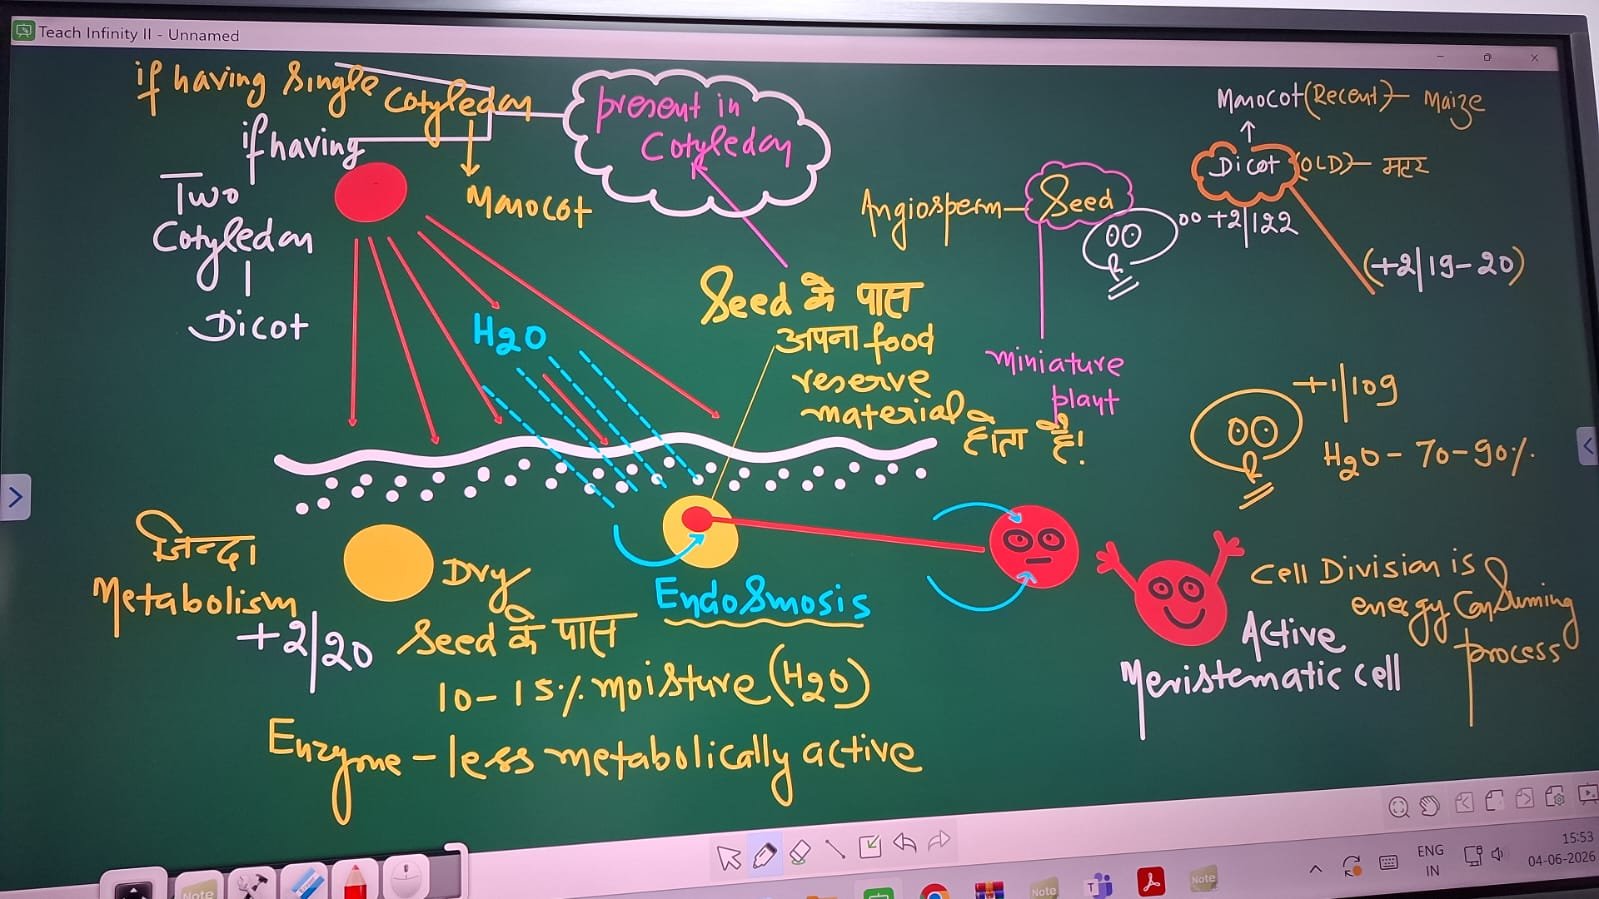 Teach Infinity II - Unnamed
if having Single Cotyledon
if having
Two
Cotyledon
Dicot
Monocot
present in
Cotyledon
Angiosperm - Seed
Monocot (Recent) - Maize
Dicot (OLD) - मटर
+2/122
(+2/19-20)
H2O
Seed के पास
अपना food
reserve
material होता है!
miniature
plant
+1/109
H2O - 70-90%.
जिन्दा
Metabolism
+2/20
Dry
Seed के पास
10-15% moisture (H2O)
Enzyme - less metabolically active
Endosmosis
Cell Division is
energy Consuming
process
Active
Meristematic cell
Note
Note
Note
ENG
IN
15:53
04-06-2026